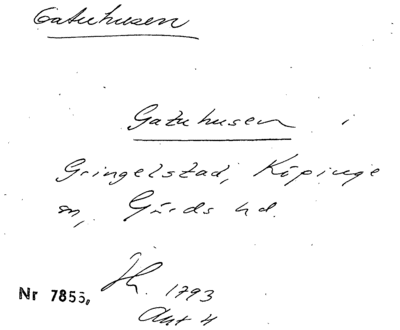 Gatuhusen
Gatuhusen i
Gringelstad, Köpinge
sn, Gärds hd.
Jh. 1793
Akt 4
Nr 7855,